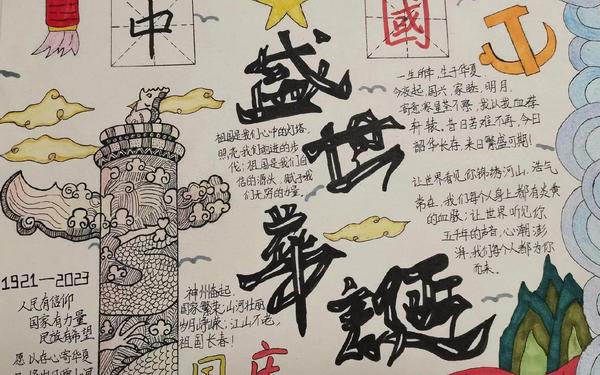 中
國
盛世華誕
一生所幸,生于华夏
今夜起,国兴,家睦,明月,
韶华长存,来日繁盛可期!
祖国是我们心中的灯塔,
照亮我们前进的步
伐;祖国是我们自
信的源头,赋予我
们无穷的力量.
让世界看见你锦绣河山,浩气
常在,我们每个人身上都有炎黄
的血脉;让世界听见你
五千年的声音,心潮澎
湃,我们每个人都为你
而来.
1921—2023
人民有信仰
国家有力量
民族有希望
愿以在心寄华夏
神州崛起,
国家繁荣;山河壮丽
岁月峥嵘,江山不老,
祖国长春!
国庆